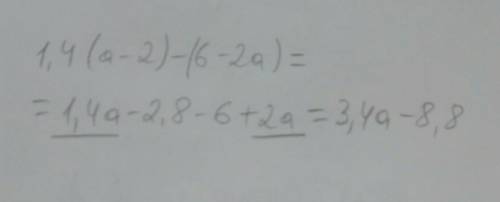 1,4(a-2)-(6-2a)=
=1,4a-2,8-6+2a=3,4a-8,8